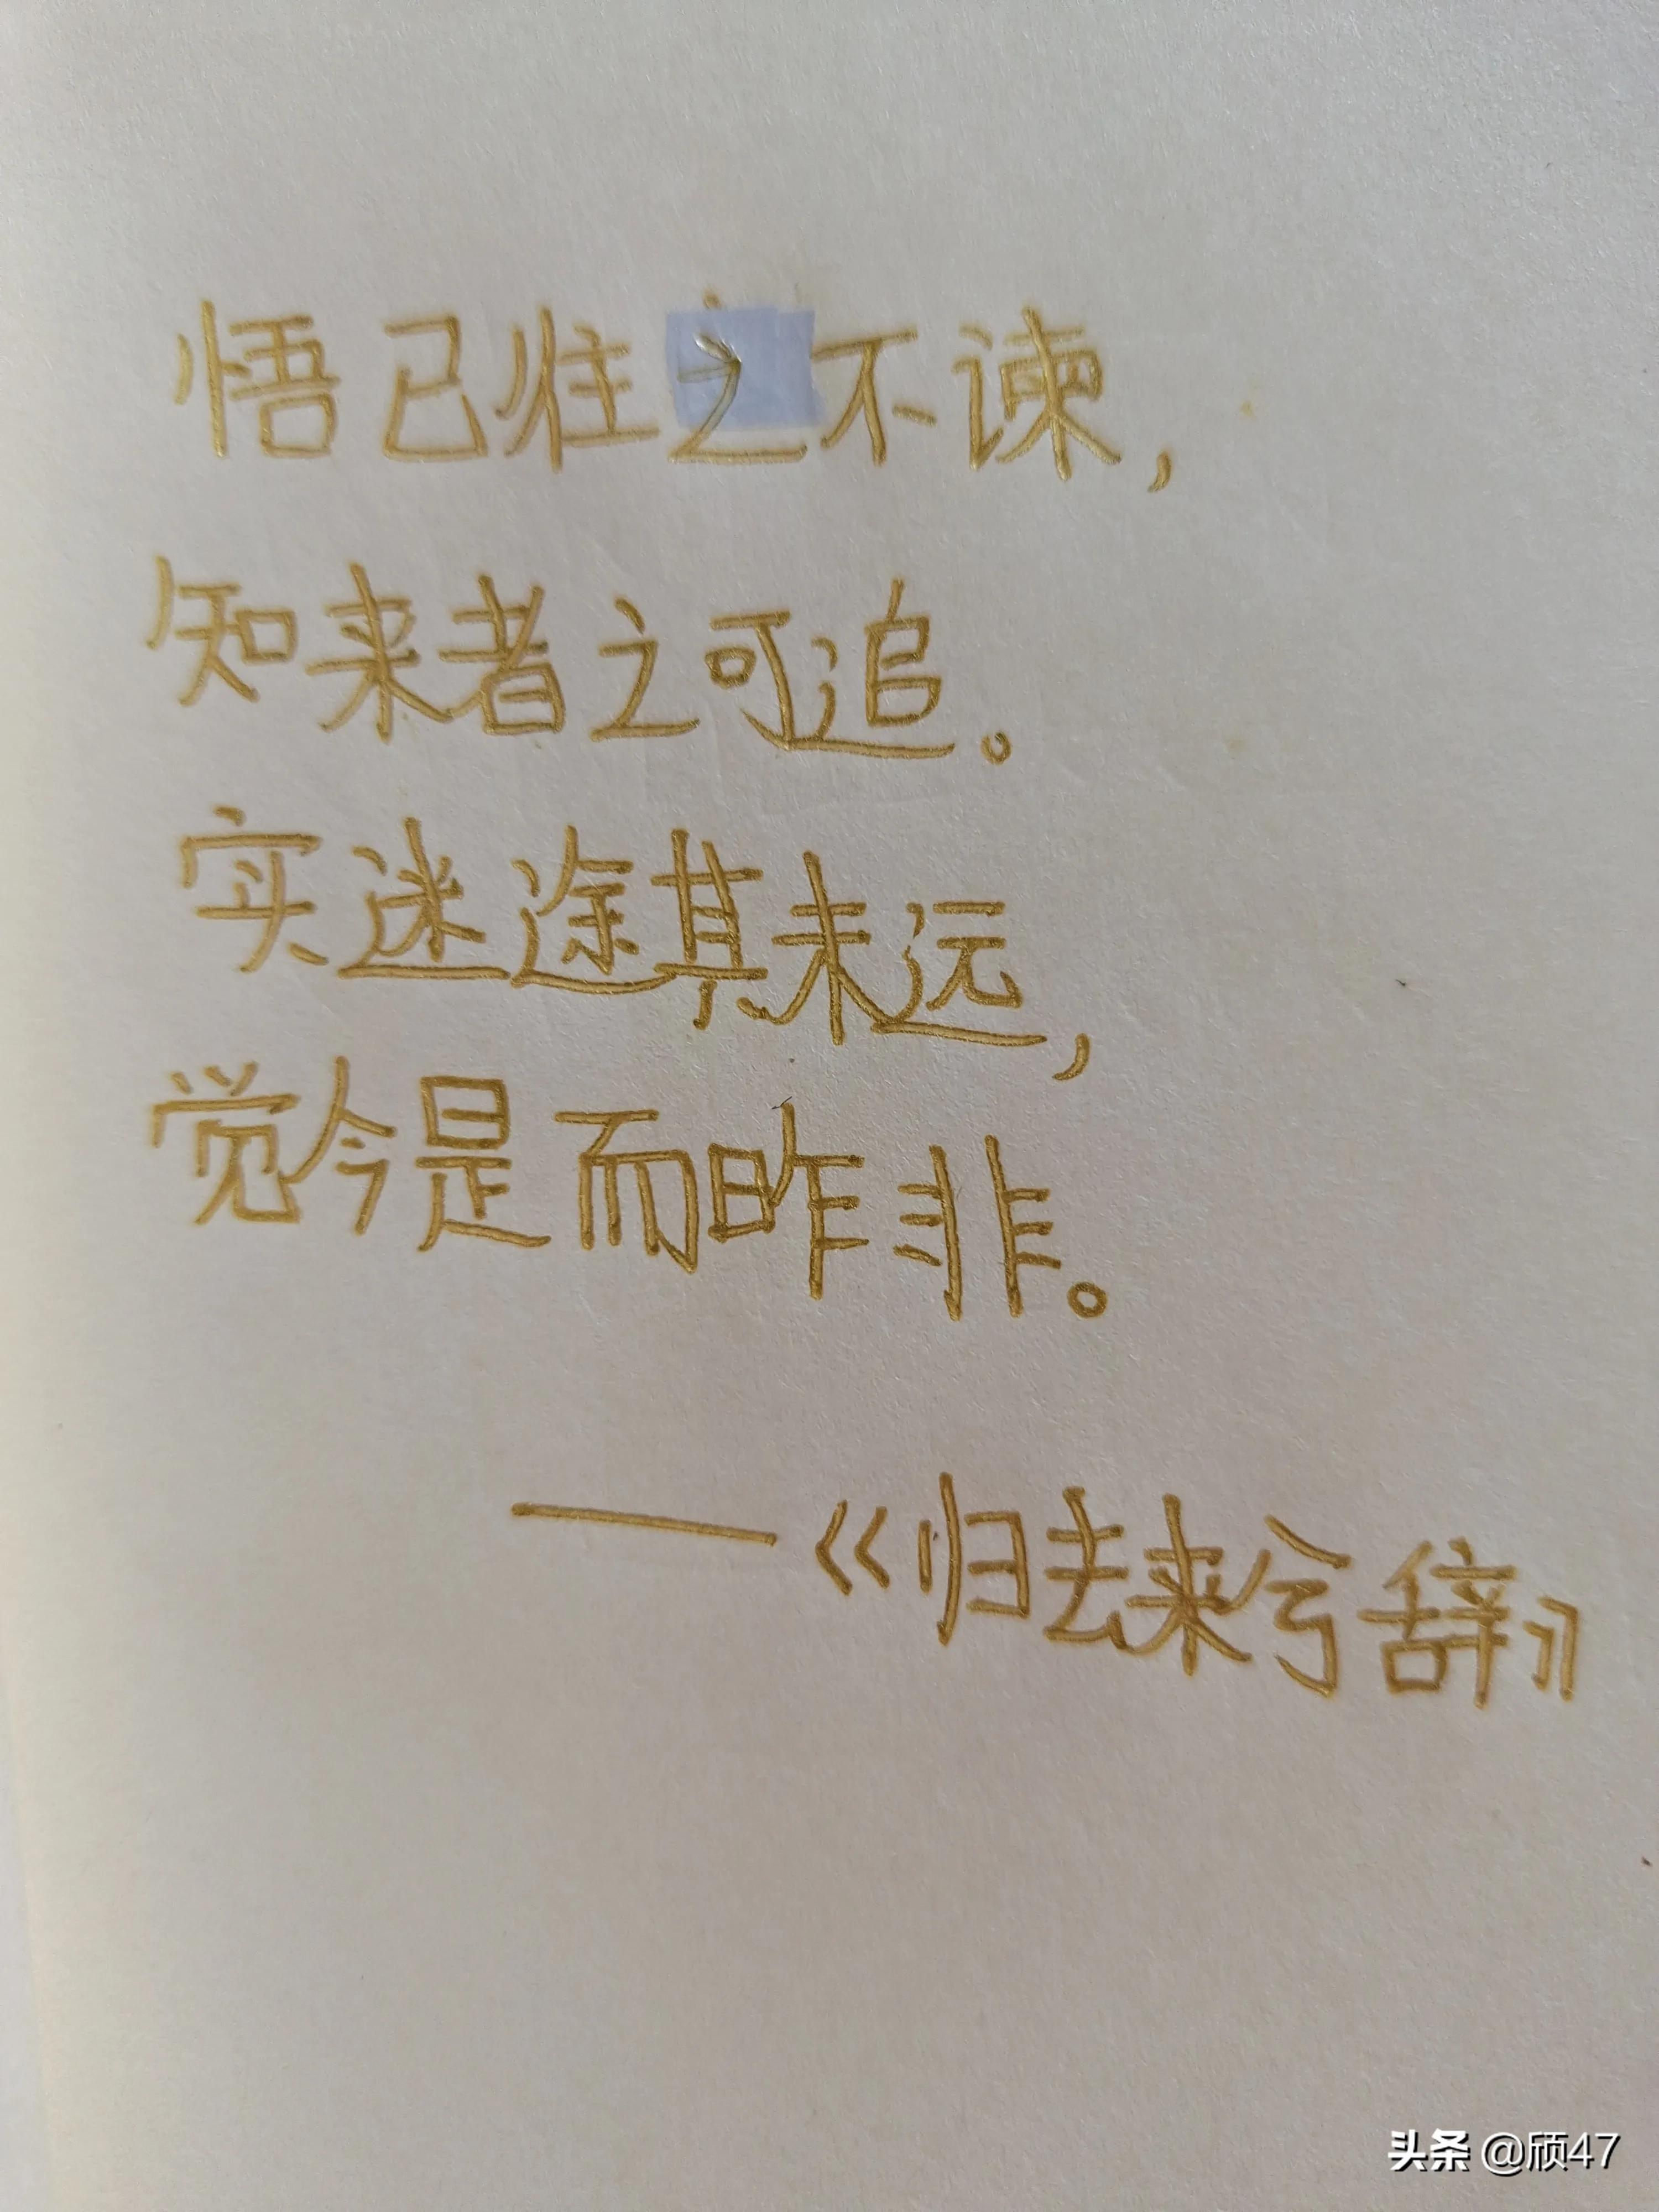 悟已往之不谏，
知来者之可追。
实迷途其未远，
觉今是而昨非。
——《归去来兮辞》
头条 @颀47